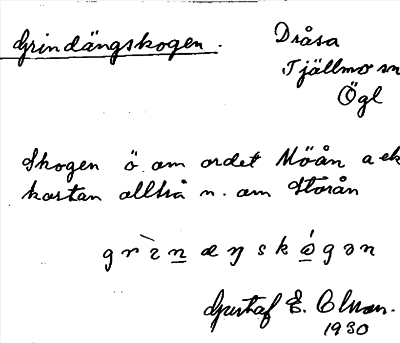 Grindängskogen.
Dråsa
Tjällmo sn
Ögl
Skogen ö. om ordet Möån a ek
kartan alltså n. om Storån
grìn æŋskógən
Gustaf E. Olsson.
1930